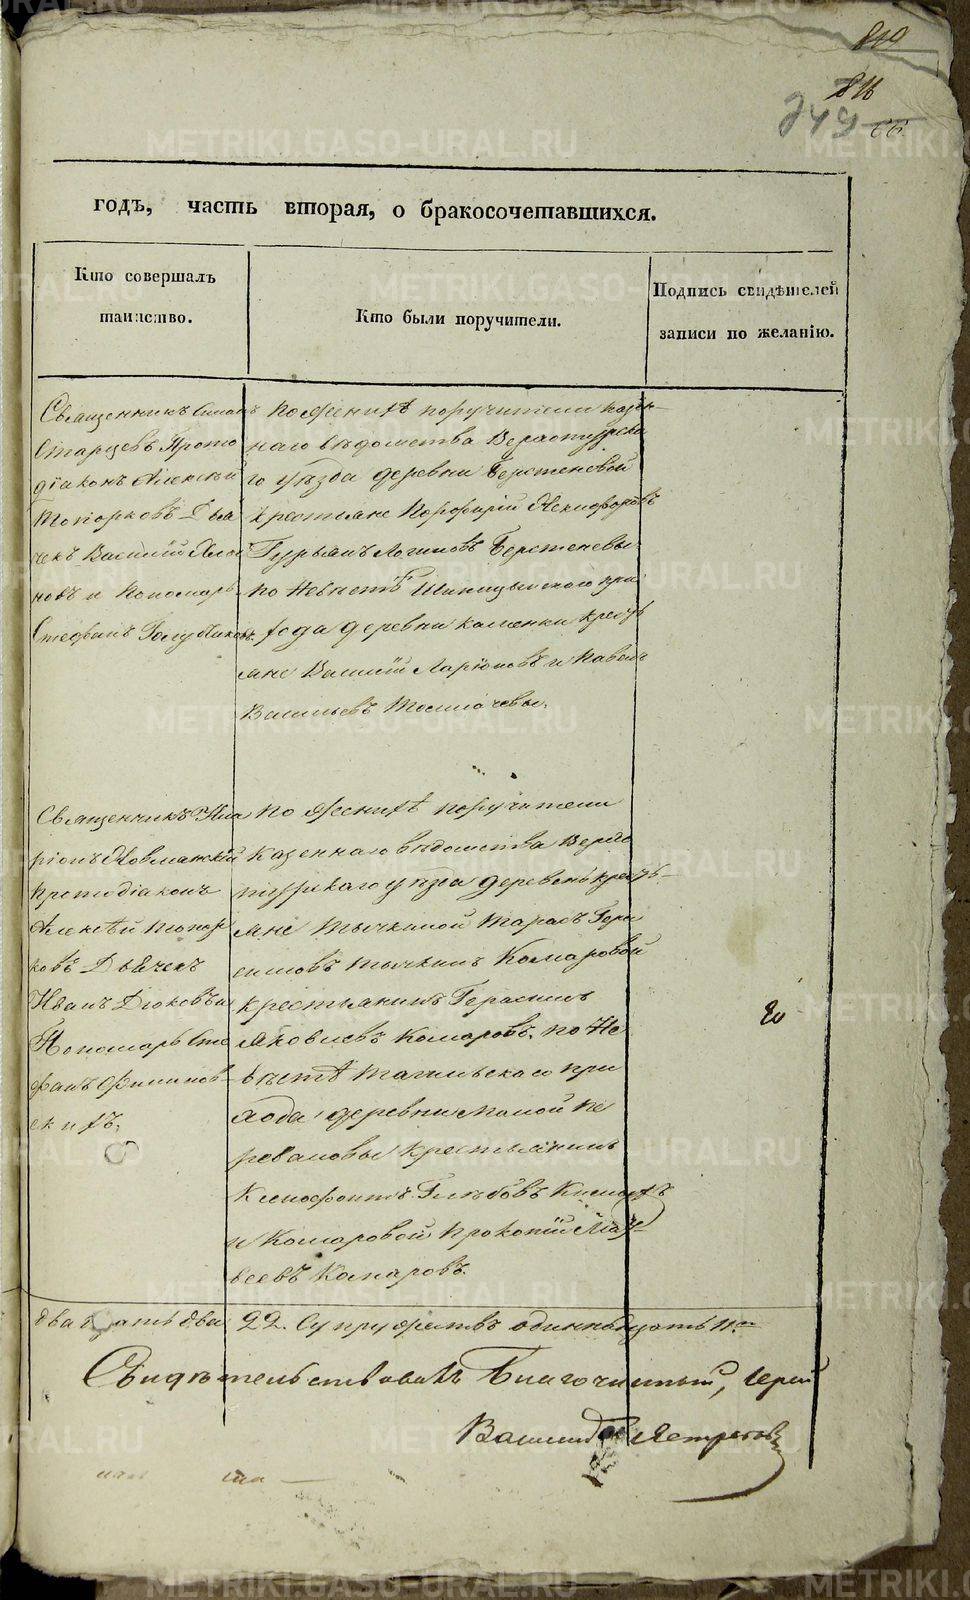 819
816
249
годъ, часть вторая, о бракосочетавшихся.
Кто совершалъ
таинство.
Кто были поручители.
Подпись свидѣтелей
записи по желанію.
Священникъ Симанъ
Старцевъ Прото
діаконъ Алексѣй
Топорковъ Дья
чекъ Василій
новъ и Пономарь
Стефанъ
по женихѣ поручители казен-
наго вѣдомства Верхотурска
го уѣзда деревни Берстеневой
крестьяне Порфирій Никифоровъ
Гурьянъ Логиновъ Берстеневы
по невѣстѣ при
хода деревни Каменки крестья
яне Василій Ларіоновъ и Павелъ
Васильевъ Толмачевы.
Священникъ Ила
ріонъ
Протодіаконъ
Алексѣй Топор
ковъ Дьячекъ
Иванъ Дюковъ и
Пономарь Сте
фанъ Филинов
скихъ.
по женихѣ поручители
казеннаго вѣдомства Верхо
турскаго уѣзда деревень кресть-
яне Тычкиной Тарасъ Гера
симовъ Тычкинъ Комаровой
крестьянинъ Герасимъ
Яковлевъ Комаровъ. по Не
вѣстѣ Тагильскаго при
хода деревни Малой
крестьянинъ
Ксенофонтъ Глѣбовъ
и Комаровой Прокопій Мат
веевъ Комаровъ.
20
двадцать два 22. Супружествъ одиннадцать 11.
Свидѣтельствовалъ Благочинный, Іерей
Василій